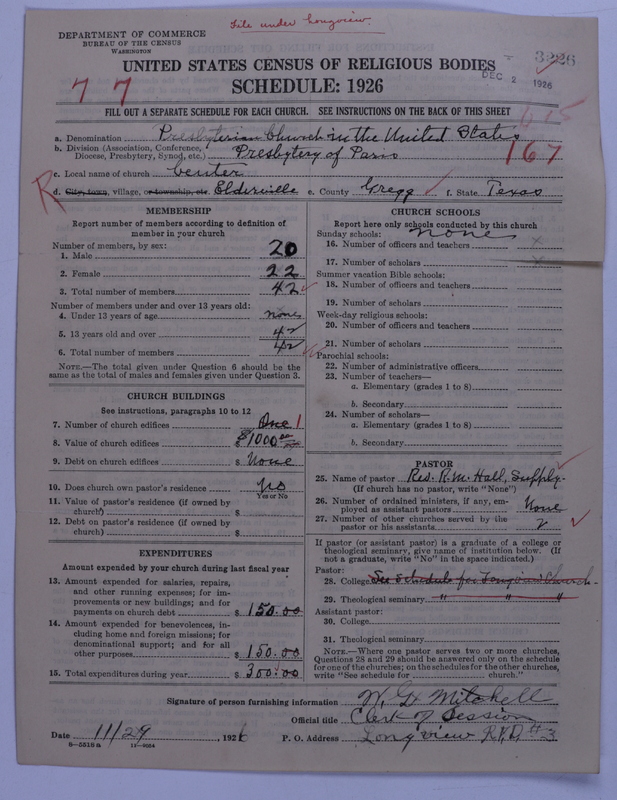 File under Longview.
DEPARTMENT OF COMMERCE
BUREAU OF THE CENSUS
WASHINGTON
3226
UNITED STATES CENSUS OF RELIGIOUS BODIES
DEC 2 1926
7 7
SCHEDULE: 1926
FILL OUT A SEPARATE SCHEDULE FOR EACH CHURCH. SEE INSTRUCTIONS ON THE BACK OF THIS SHEET
a. Denomination Presbyterian Church in the United States
b. Division (Association, Conference, Diocese, Presbytery, Synod, etc.) Presbytery of Paris
167
c. Local name of church Center
R
d. City, town, village, or township, etc. Elderville e. County Gregg f. State Texas
MEMBERSHIP
Report number of members according to definition of
member in your church
Number of members, by sex:
1. Male 20
2. Female 22
3. Total number of members 42
Number of members under and over 13 years old:
4. Under 13 years of age none
5. 13 years old and over 42
6. Total number of members 42
NOTE.—The total given under Question 6 should be
same as the total of males and females given under Question 3.
CHURCH BUILDINGS
See instructions, paragraphs 10 to 12
7. Number of church edifices One 1
8. Value of church edifices $1000.00
9. Debt on church edifices $ None
10. Does church own pastor's residence No
Yes or No
11. Value of pastor's residence (if owned by
church) $
12. Debt on pastor's residence (if owned by
church) $
EXPENDITURES
Amount expended by your church during last fiscal year
13. Amount expended for salaries, repairs,
and other running expenses; for im-
provements or new buildings; and for
payments on church debt $ 150.00
14. Amount expended for benevolences, in-
cluding home and foreign missions; for
denominational support; and for all
other purposes $ 150.00
15. Total expenditures during year $ 300.00
CHURCH SCHOOLS
Report here only schools conducted by this church
Sunday schools: none
16. Number of officers and teachers x
17. Number of scholars x
Summer vacation Bible schools:
18. Number of officers and teachers
19. Number of scholars
Week-day religious schools:
20. Number of officers and teachers
21. Number of scholars
Parochial schools:
22. Number of administrative officers
23. Number of teachers—
a. Elementary (grades 1 to 8)
b. Secondary
24. Number of scholars—
a. Elementary (grades 1 to 8)
b. Secondary
PASTOR
25. Name of pastor Rev. R. M. Hall, Supply.
(If church has no pastor, write "None")
26. Number of ordained ministers, if any, em-
ployed as assistant pastors None
27. Number of other churches served by the
pastor or his assistants 2
If pastor (or assistant pastor) is a graduate of a college or
theological seminary, give name of institution below. (If
not a graduate, write "No" in the space indicated.)
Pastor:
28. College See Schedule for Longview Church
29. Theological seminary " " "
Assistant pastor:
30. College
31. Theological seminary
NOTE.—Where one pastor serves two or more churches,
Questions 28 and 29 should be answered only on the schedule
for one of the churches; on the schedules for the other churches,
write "See schedule for church."
Signature of person furnishing information W. G. Mitchell
Official title Clerk of Session
Date 11/29 1926 P. O. Address Longview R.F.D. #3
8—5518 a 11—9054